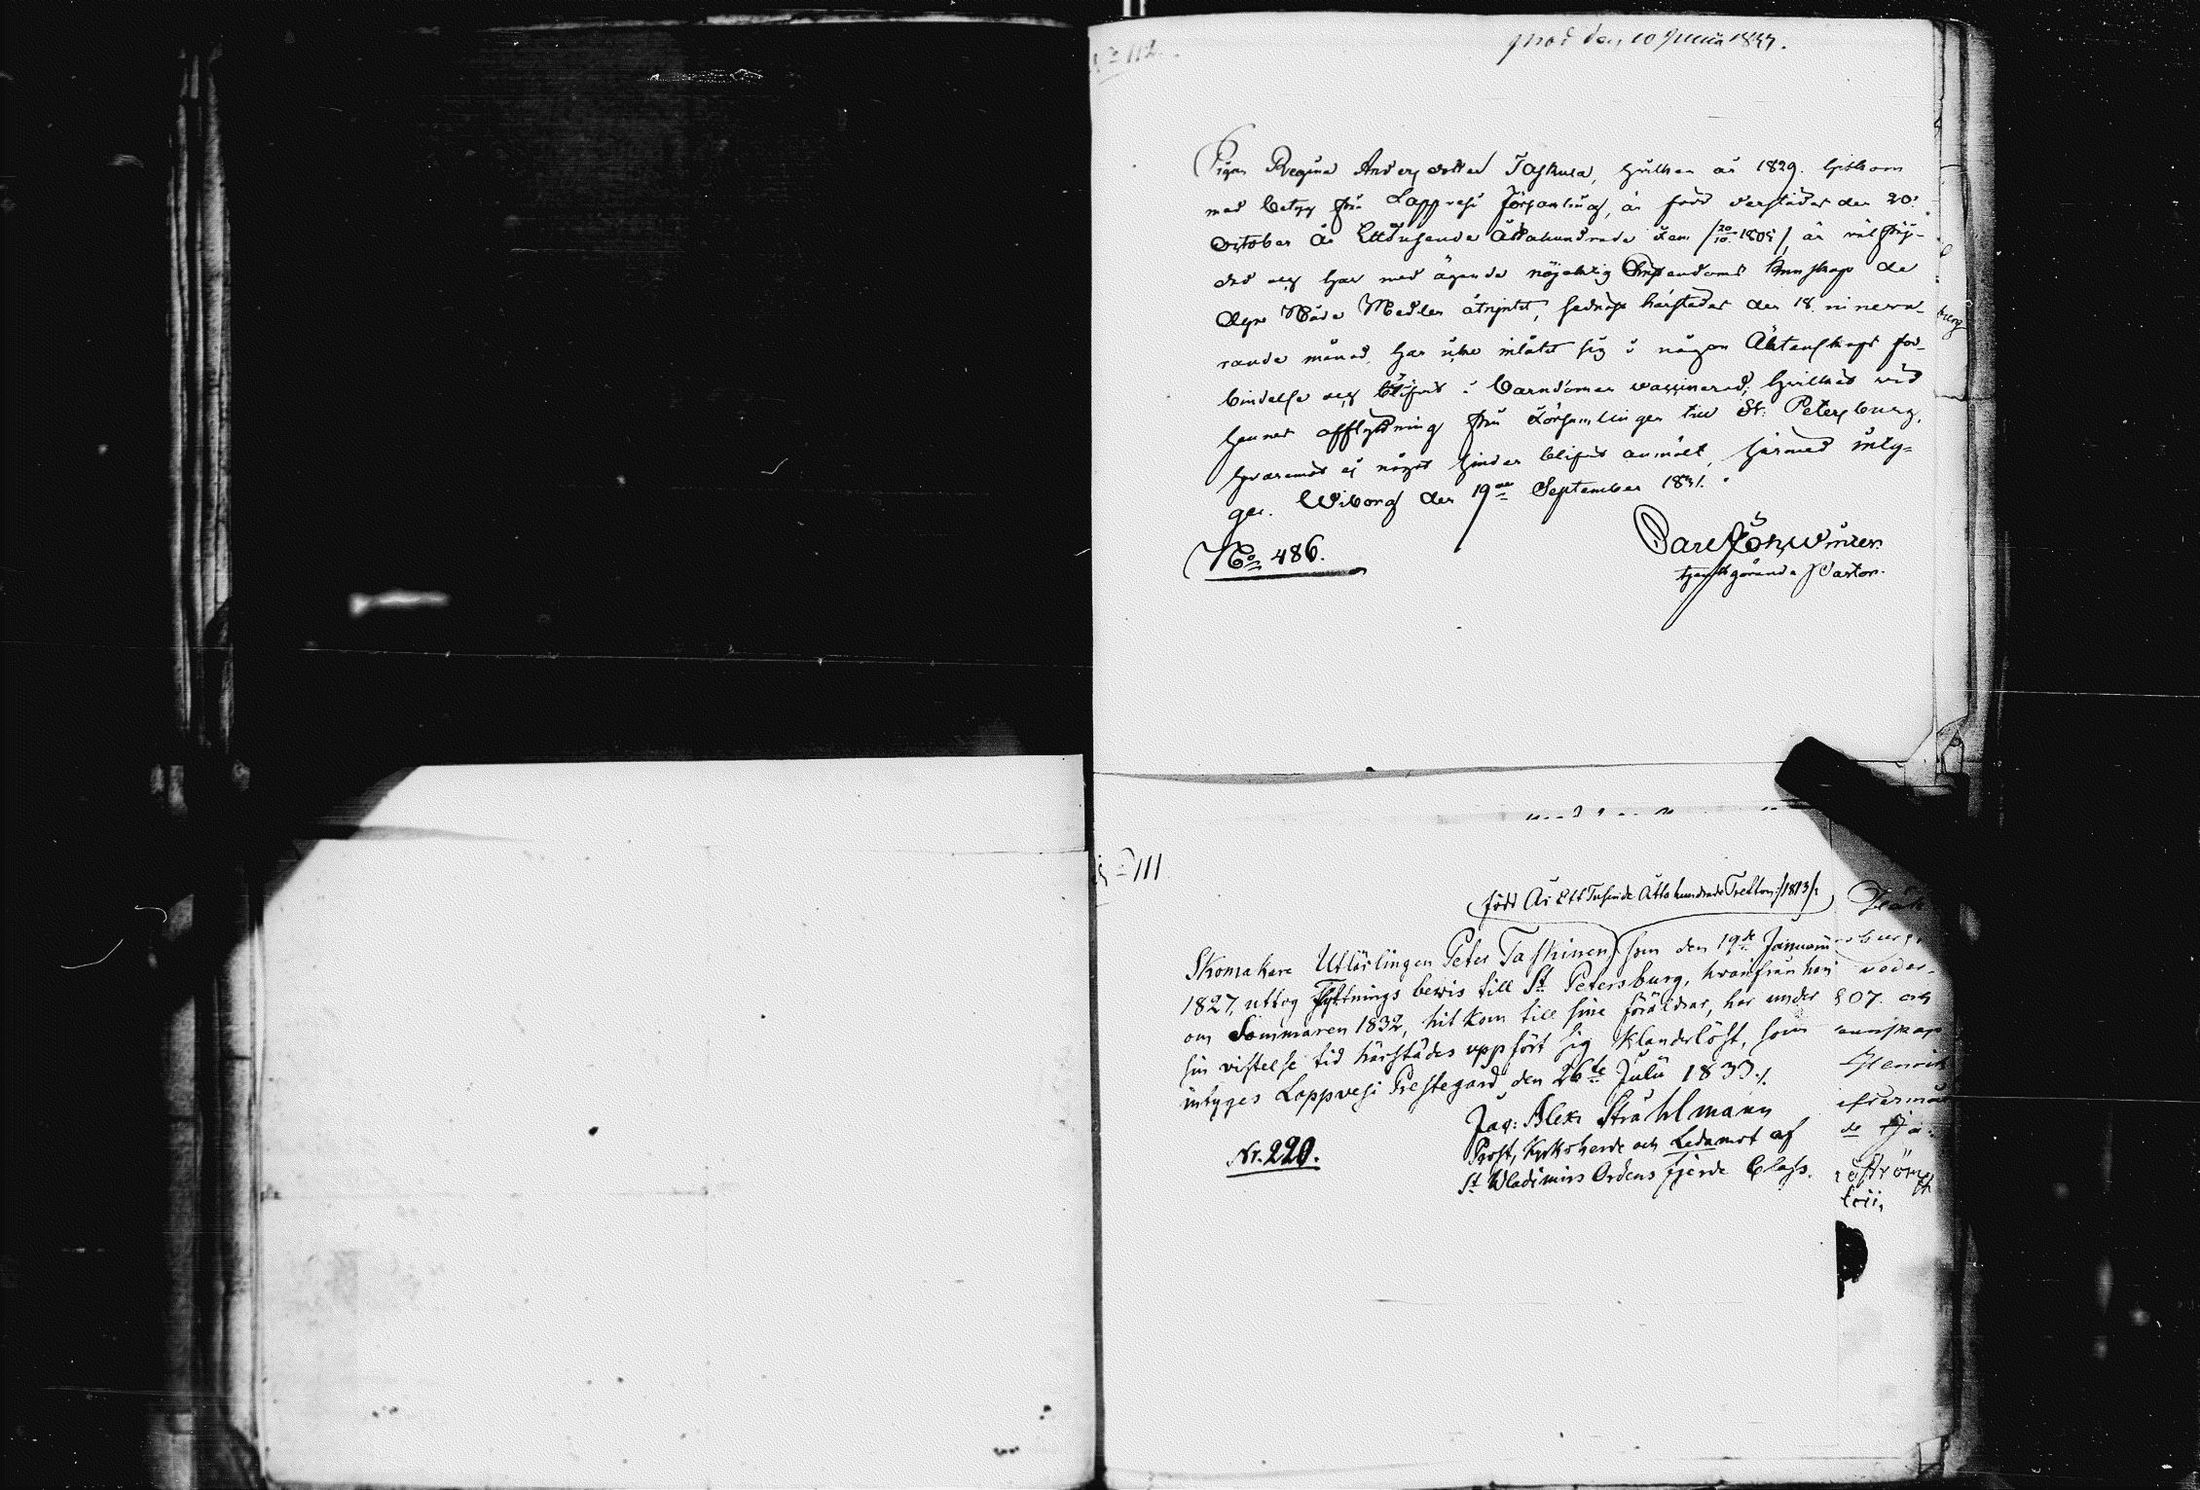 № 112.
prod den 10 Junii 1837.
Pigan Regina Anders dotter Taskula, hvilken år 1829. hitkom
med betyg från Lappvesi församling, är född derstädes den 20.
October År Ettusende Åttahundrade Fem /20/10 1805/, är välfräj-
dad och har med ägande nöjaktig Christendoms kunskap de
dyra Nåde Medlen åtnjutit, sednast härstädes den 18. i nevva-
rande månad, har icke inlåtit sig i någon Äktenskaps för-
bindelse och blifvit i barndomen vaccinerad; hvilket vid
hennes afflyttning från Församlingen till St. Petersburg,
hvaremot ej något hinder blifvit anmält, härmed inty-
gas. Wiborg den 19de September 1831.
No 486.
Carl Joh. Winter.
tjenstgörande Pastor.
№ 111
född År Ett Tusende Åtta hundrade Tretton /1813/:
Skomakare Utlärlingen Peter Taskinen, som den 19de Januarii
1827, uttog flyttnings bewis till St Petersburg, hvarifrån han
om Sommaren 1832, hit kom till sine föräldrar, har under
sin vistelse tid härstädes uppfört sig klanderlöst, som
intyges Lappvesi Prestegård den 26te Julii 1833./.
Jac: Alex: Stråhlmann
Prost, Kyrkoherde och Ledamot af
St Wladimirs Ordens fjerde Class.
Nr. 220.